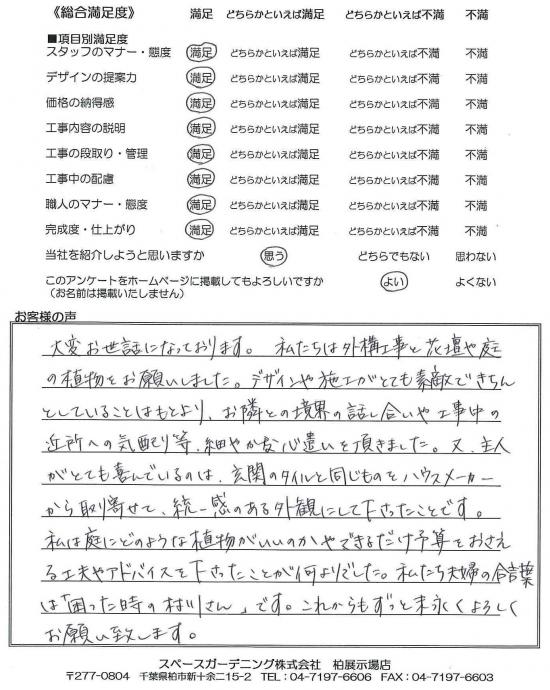 《総合満足度》 満足 どちらかといえば満足 どちらかといえば不満 不満
■項目別満足度
スタッフのマナー・態度 満足 どちらかといえば満足 どちらかといえば不満 不満
デザインの提案力 満足 どちらかといえば満足 どちらかといえば不満 不満
価格の納得感 満足 どちらかといえば満足 どちらかといえば不満 不満
工事内容の説明 満足 どちらかといえば満足 どちらかといえば不満 不満
工事の段取り・管理 満足 どちらかといえば満足 どちらかといえば不満 不満
工事中の配慮 満足 どちらかといえば満足 どちらかといえば不満 不満
職人のマナー・態度 満足 どちらかといえば満足 どちらかといえば不満 不満
完成度・仕上がり 満足 どちらかといえば満足 どちらかといえば不満 不満
当社を紹介しようと思いますか 思う どちらでもない 思わない
このアンケートをホームページに掲載してもよろしいですか よい よくない
(お名前は掲載いたしません)
お客様の声
大変お世話になっております。 私たちは外構工事と花壇や庭
の植物をお願いしました。デザインや施工がとても素敵できちん
としていることはもとより、お隣との境界の話し合いや工事中の
近所への気配り等、細やかな心遣いを頂きました。又、主人
がとても喜んでいるのは、玄関のタイルと同じものをハウスメーカー
から取り寄せて、統一感のある外観にして下さったことです。
私は庭にどのような植物がいいのかやできるだけ予算をおさえ
る工夫やアドバイスを下さったことが何よりでした。私たち夫婦の合言葉
は「困った時の村川さん」です。これからもずっと末永くよろしく
お願い致します。
スペースガーデニング株式会社 柏展示場店
〒277-0804 千葉県柏市新十余二15-2 TEL:04-7197-6606 FAX:04-7197-6603